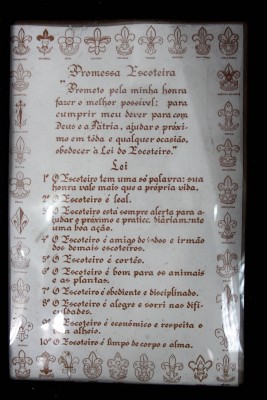 Promessa Escoteira
"Prometo pela minha honra
fazer o melhor possível: para
cumprir meu dever para com
Deus e a Pátria, ajudar o próxi-
mo em tôda e qualquer ocasião,
obedecer à Lei do Escoteiro."
Lei
1º O Escoteiro tem uma só palavra: sua
honra vale mais que a própria vida.
2º O Escoteiro é leal.
O Escoteiro está sempre alerta para a-
judar o próximo e pratica diàriamente
uma boa ação.
4º O Escoteiro é amigo de todos e irmão
dos demais escoteiros.
5º O Escoteiro é cortês.
6º O Escoteiro é bom para os animais
e as plantas.
7º O Escoteiro é obediente e disciplinado.
8º O Escoteiro é alegre e sorri nas difi-
culdades.
O Escoteiro é econômico e respeita o
bem alheio.
10º O Escoteiro é limpo de corpo e alma.